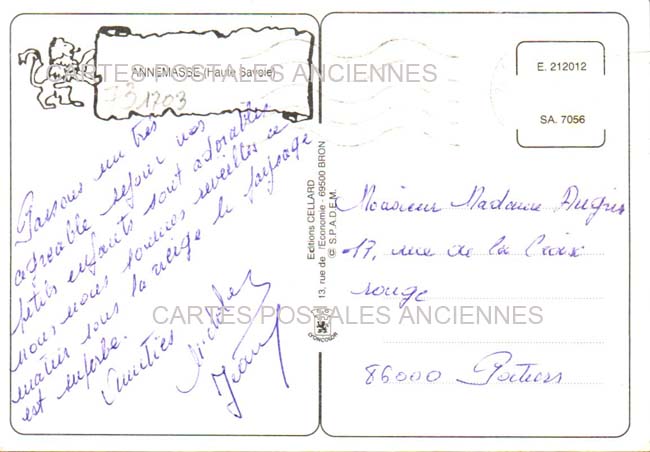 ANNEMASSE (Haute Savoie)
CARTES POSTALES ANCIENNES
Passons un très
agréable sejour nos
petits enfants sont adorables
nous nous sommes reveillés ce
matin sous la neige le paysage
est superbe.
Amitiés
Jean
Editions CELLARD
13, rue de l'Economie - 69500 BRON
© S.P.A.D.E.M.
E. 212012
SA. 7056
Monsieur Madame
17, rue de la Croix
rouge
CARTES POSTALES ANCIENNES
86000 Poitiers